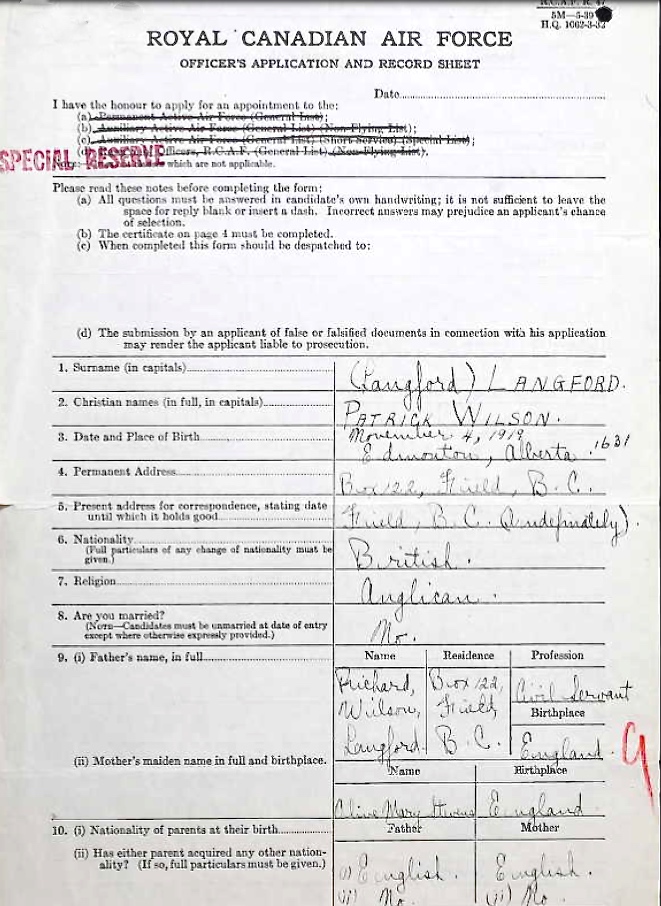 R.C.A.F. R. 47
5M—5-39
H.Q. 1062-3-32
ROYAL CANADIAN AIR FORCE
OFFICER'S APPLICATION AND RECORD SHEET
Date
I have the honour to apply for an appointment to the:
(a) Permanent Active Air Force (General List);
(b) Auxiliary Active Air Force (General List) (Non-Flying List);
(c) Auxiliary Active Air Force (General List) (Short Service) (Special List);
SPECIAL RESERVE
Officers, R.C.A.F. (General List) (Non-Flying List),
which are not applicable.
Please read these notes before completing the form:
(a) All questions must be answered in candidate's own handwriting; it is not sufficient to leave the
space for reply blank or insert a dash. Incorrect answers may prejudice an applicant's chance
of selection.
(b) The certificate on page 4 must be completed.
(c) When completed this form should be despatched to:
(d) The submission by an applicant of false or falsified documents in connection with his application
may render the applicant liable to prosecution.
1. Surname (in capitals) (Langford) LANGFORD.
2. Christian names (in full, in capitals) PATRICK WILSON.
3. Date and Place of Birth November 4, 1919
Edmonton, Alberta. 1631
4. Permanent Address Box 122, Field, B.C.
5. Present address for correspondence, stating date
until which it holds good Field, B.C. (Indefinately).
6. Nationality British.
(Full particulars of any change of nationality must be
given.)
7. Religion Anglican.
8. Are you married?
(NOTE—Candidates must be unmarried at date of entry
except where otherwise expressly provided.) No.
9. (i) Father's name, in full Name Residence Profession
Richard, Box 122, Civil Servant
Wilson, Field, Birthplace
Langford. B.C. England.
9
(ii) Mother's maiden name in full and birthplace.
Name Birthplace
Olive Mary Stevens England
10. (i) Nationality of parents at their birth Father Mother
(ii) Has either parent acquired any other nation-
ality? (If so, full particulars must be given.)
(i) English. English.
(ii) No. (ii) No.